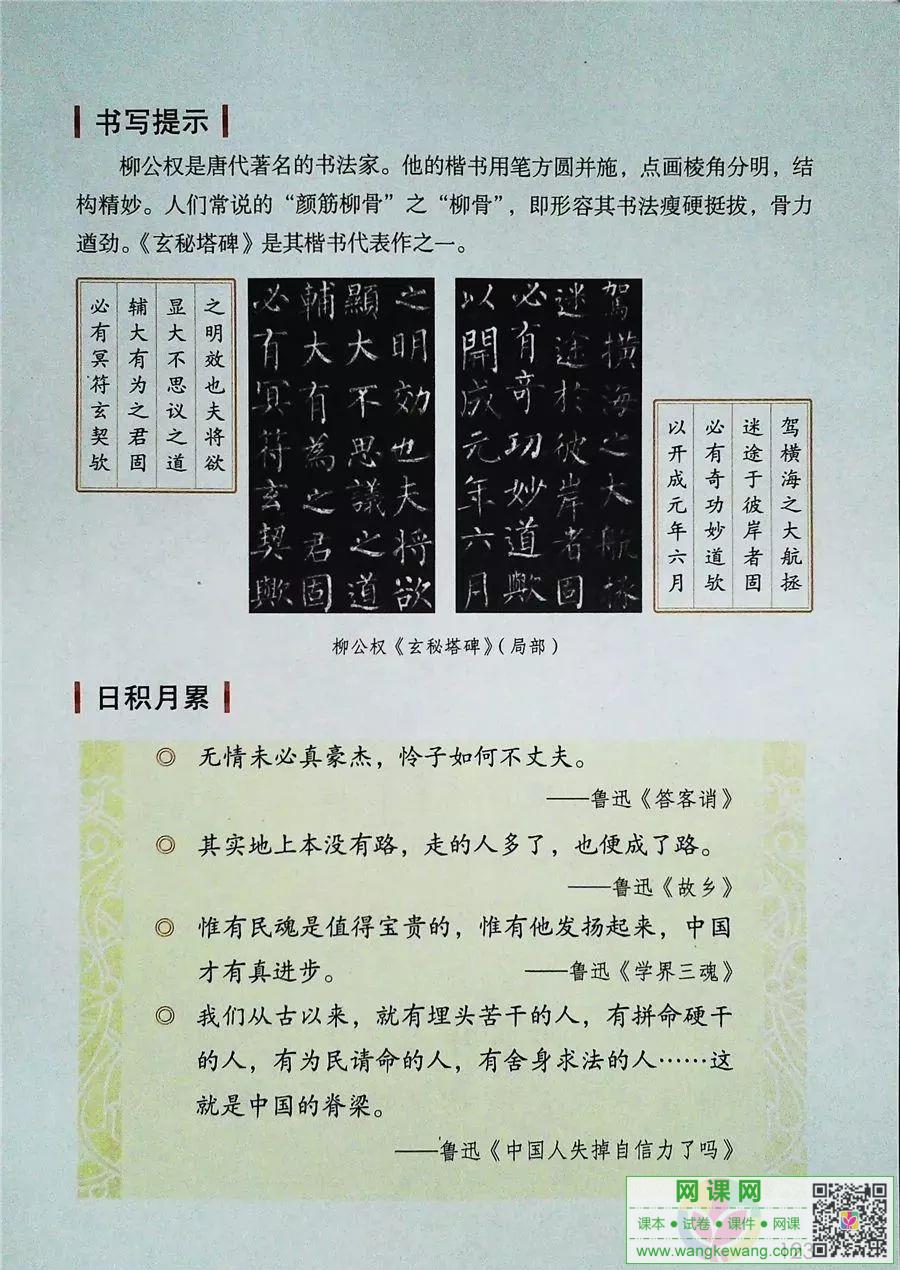 书写提示
柳公权是唐代著名的书法家。他的楷书用笔方圆并施，点画棱角分明，结
构精妙。人们常说的“颜筋柳骨”之“柳骨”，即形容其书法瘦硬挺拔，骨力
遒劲。《玄秘塔碑》是其楷书代表作之一。
之明效也夫将欲
显大不思议之道
辅大有为之君固
必有冥符玄契欤
之明効也夫将欲
顯大不思議之道
輔大有為之君固
必有冥符玄契歟
駕横海之大航拯
迷途於彼岸者固
必有奇功妙道歟
以開成元年六月
驾横海之大航拯
迷途于彼岸者固
必有奇功妙道欤
以开成元年六月
柳公权《玄秘塔碑》（局部）
日积月累
◎ 无情未必真豪杰，怜子如何不丈夫。
——鲁迅《答客诮》
◎ 其实地上本没有路，走的人多了，也便成了路。
——鲁迅《故乡》
◎ 惟有民魂是值得宝贵的，惟有他发扬起来，中国
才有真进步。 ——鲁迅《学界三魂》
◎ 我们从古以来，就有埋头苦干的人，有拼命硬干
的人，有为民请命的人，有舍身求法的人……这
就是中国的脊梁。
——鲁迅《中国人失掉自信力了吗》
网课网
课本●试卷●课件●网课
www.wangkewang.com
123